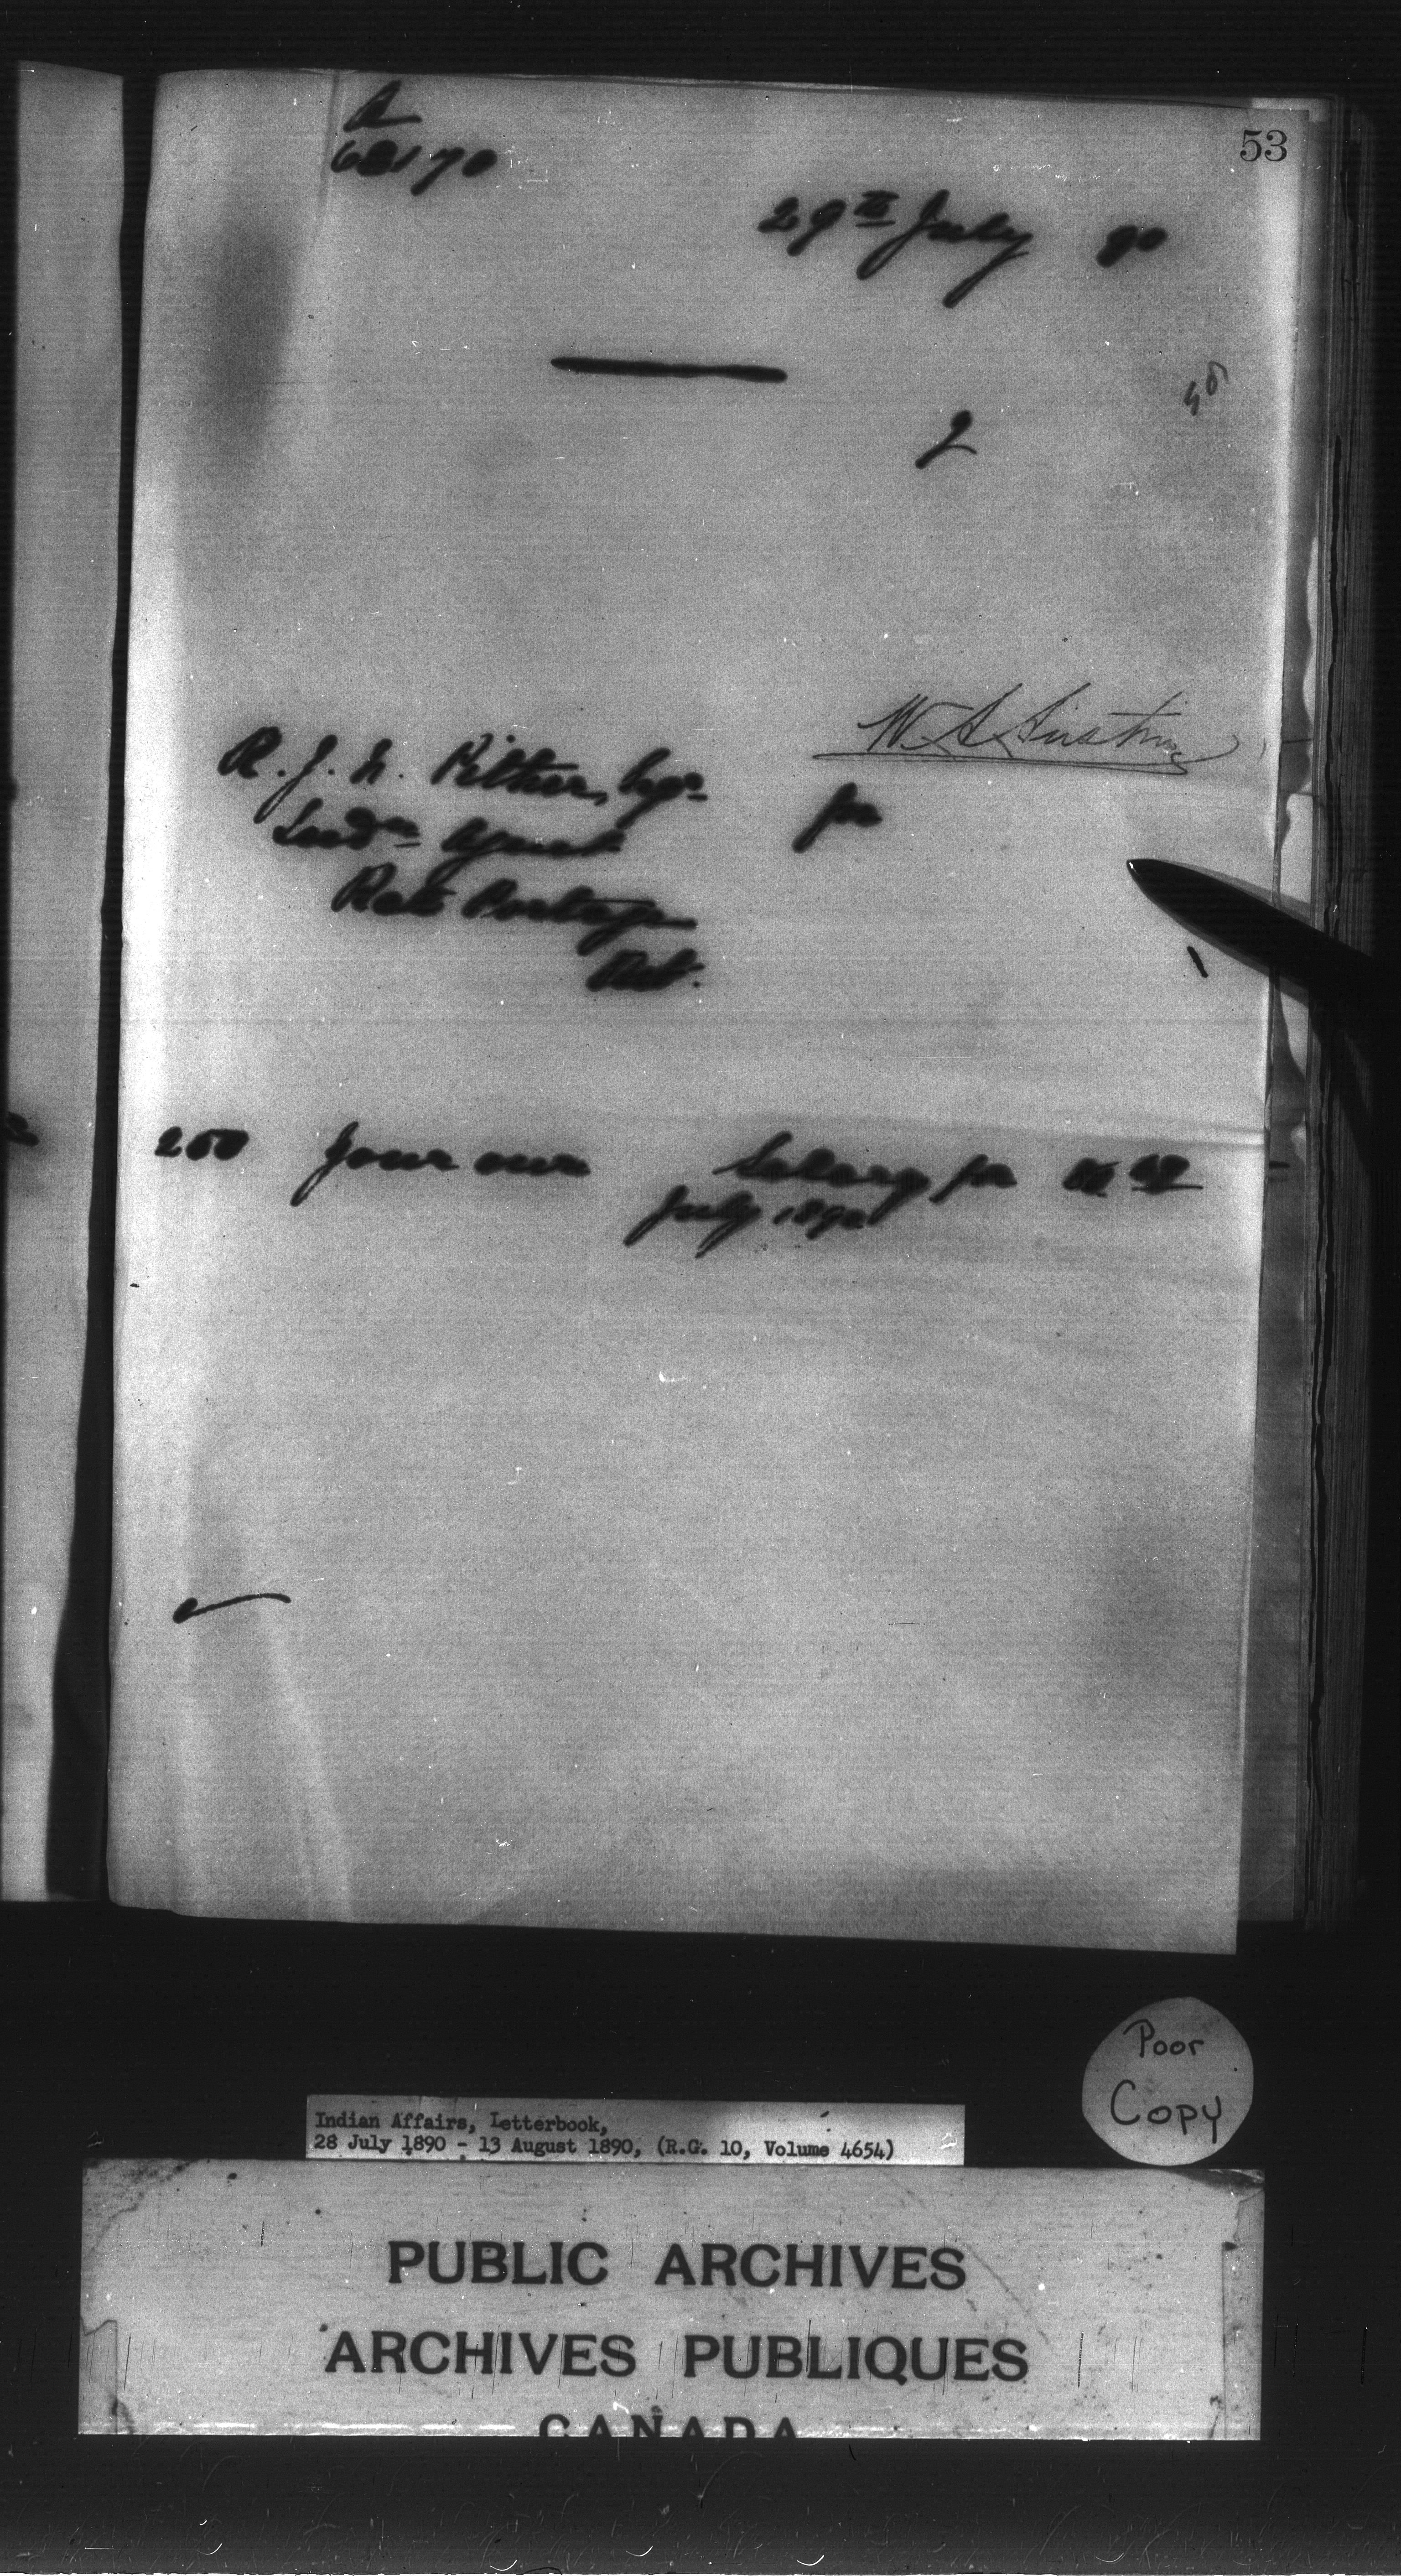 53
A
29th July 90
R. J. N. Pither, Esqr
Indn Agent
Rat Portage
Ont.
for
200 Your own Salary for
July 1890
Poor
Copy
Indian Affairs, Letterbook,
28 July 1890 - 13 August 1890, (R.G. 10, Volume 4654)
PUBLIC ARCHIVES
ARCHIVES PUBLIQUES
CANADA